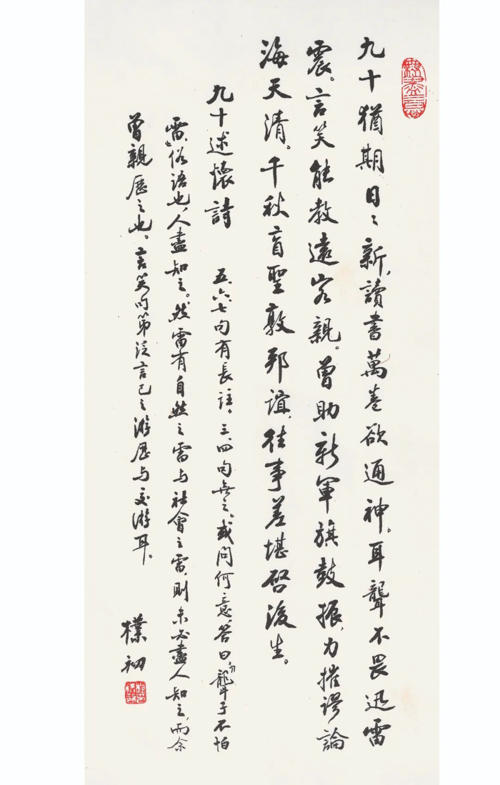 九十猶期日々新，讀書萬卷欲通神。耳聾不畏迅雷
震，言笑能教遠客親。曾助新軍旗鼓振，力摧謬論
海天清。千秋盲聖敦邦誼，往事差堪啓後生。
九十述懷詩
五、六、七句有長註，三、四句無之，或問何意，答曰：“聾子不怕
雷”，俗語也，人盡知之。然雷有自然之雷與社會之雷，則未必盡人知之，而余
曾親歷之也，言笑句第泛言己之游歷与交游耳。
樸初